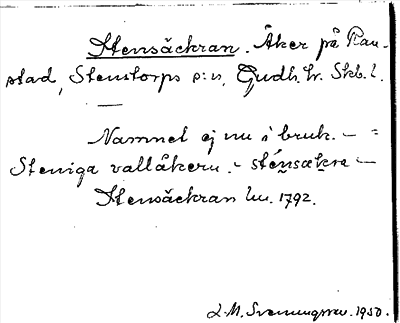 Stensäckran. Åker på Ran-
stad, Stenstorps s:n, Gudh. hr. Skb. l.
—
Namnet ej nu i bruk. – =
Steniga vallåkern. – sténsækra –
Stensäckran lm. 1792.
L. M. Svenungsson. 1950.